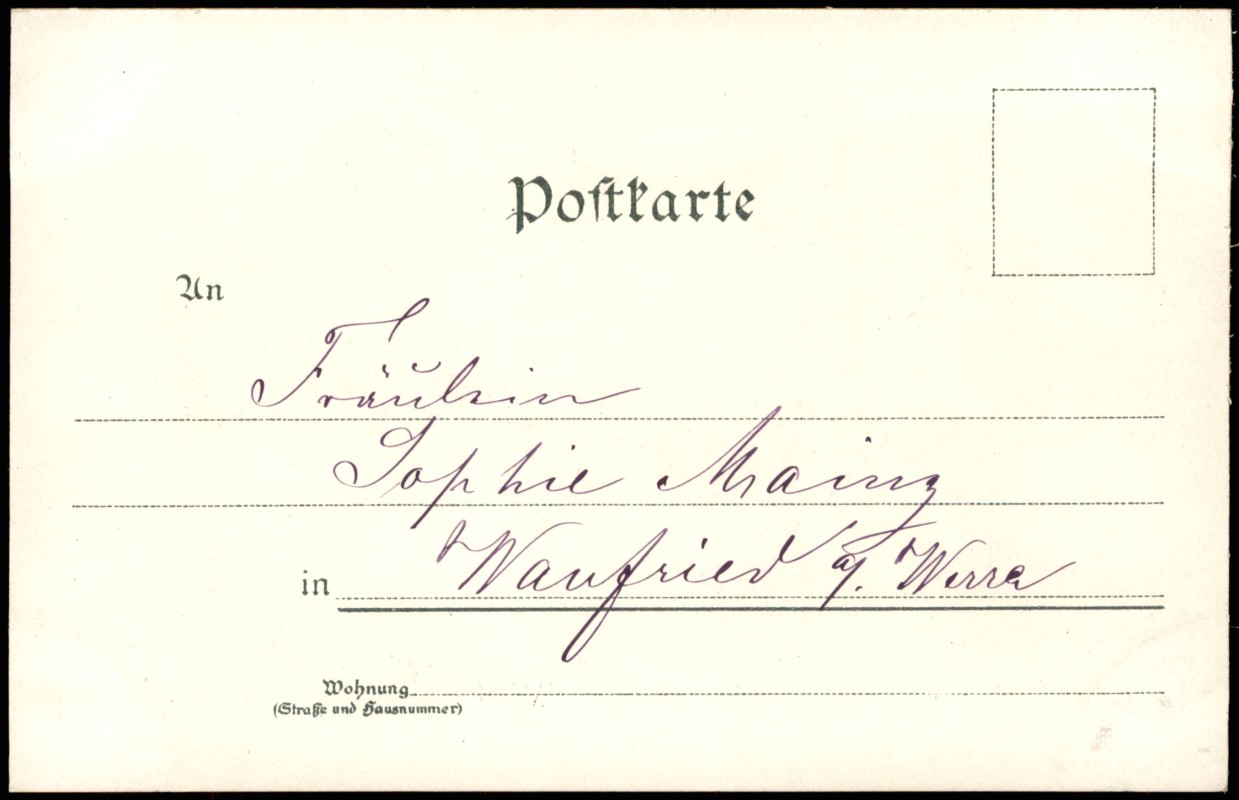 Postkarte
An
Fräulein
Sophie Mainz
in Wanfried a/. Werra
Wohnung
(Straße und Hausnummer)